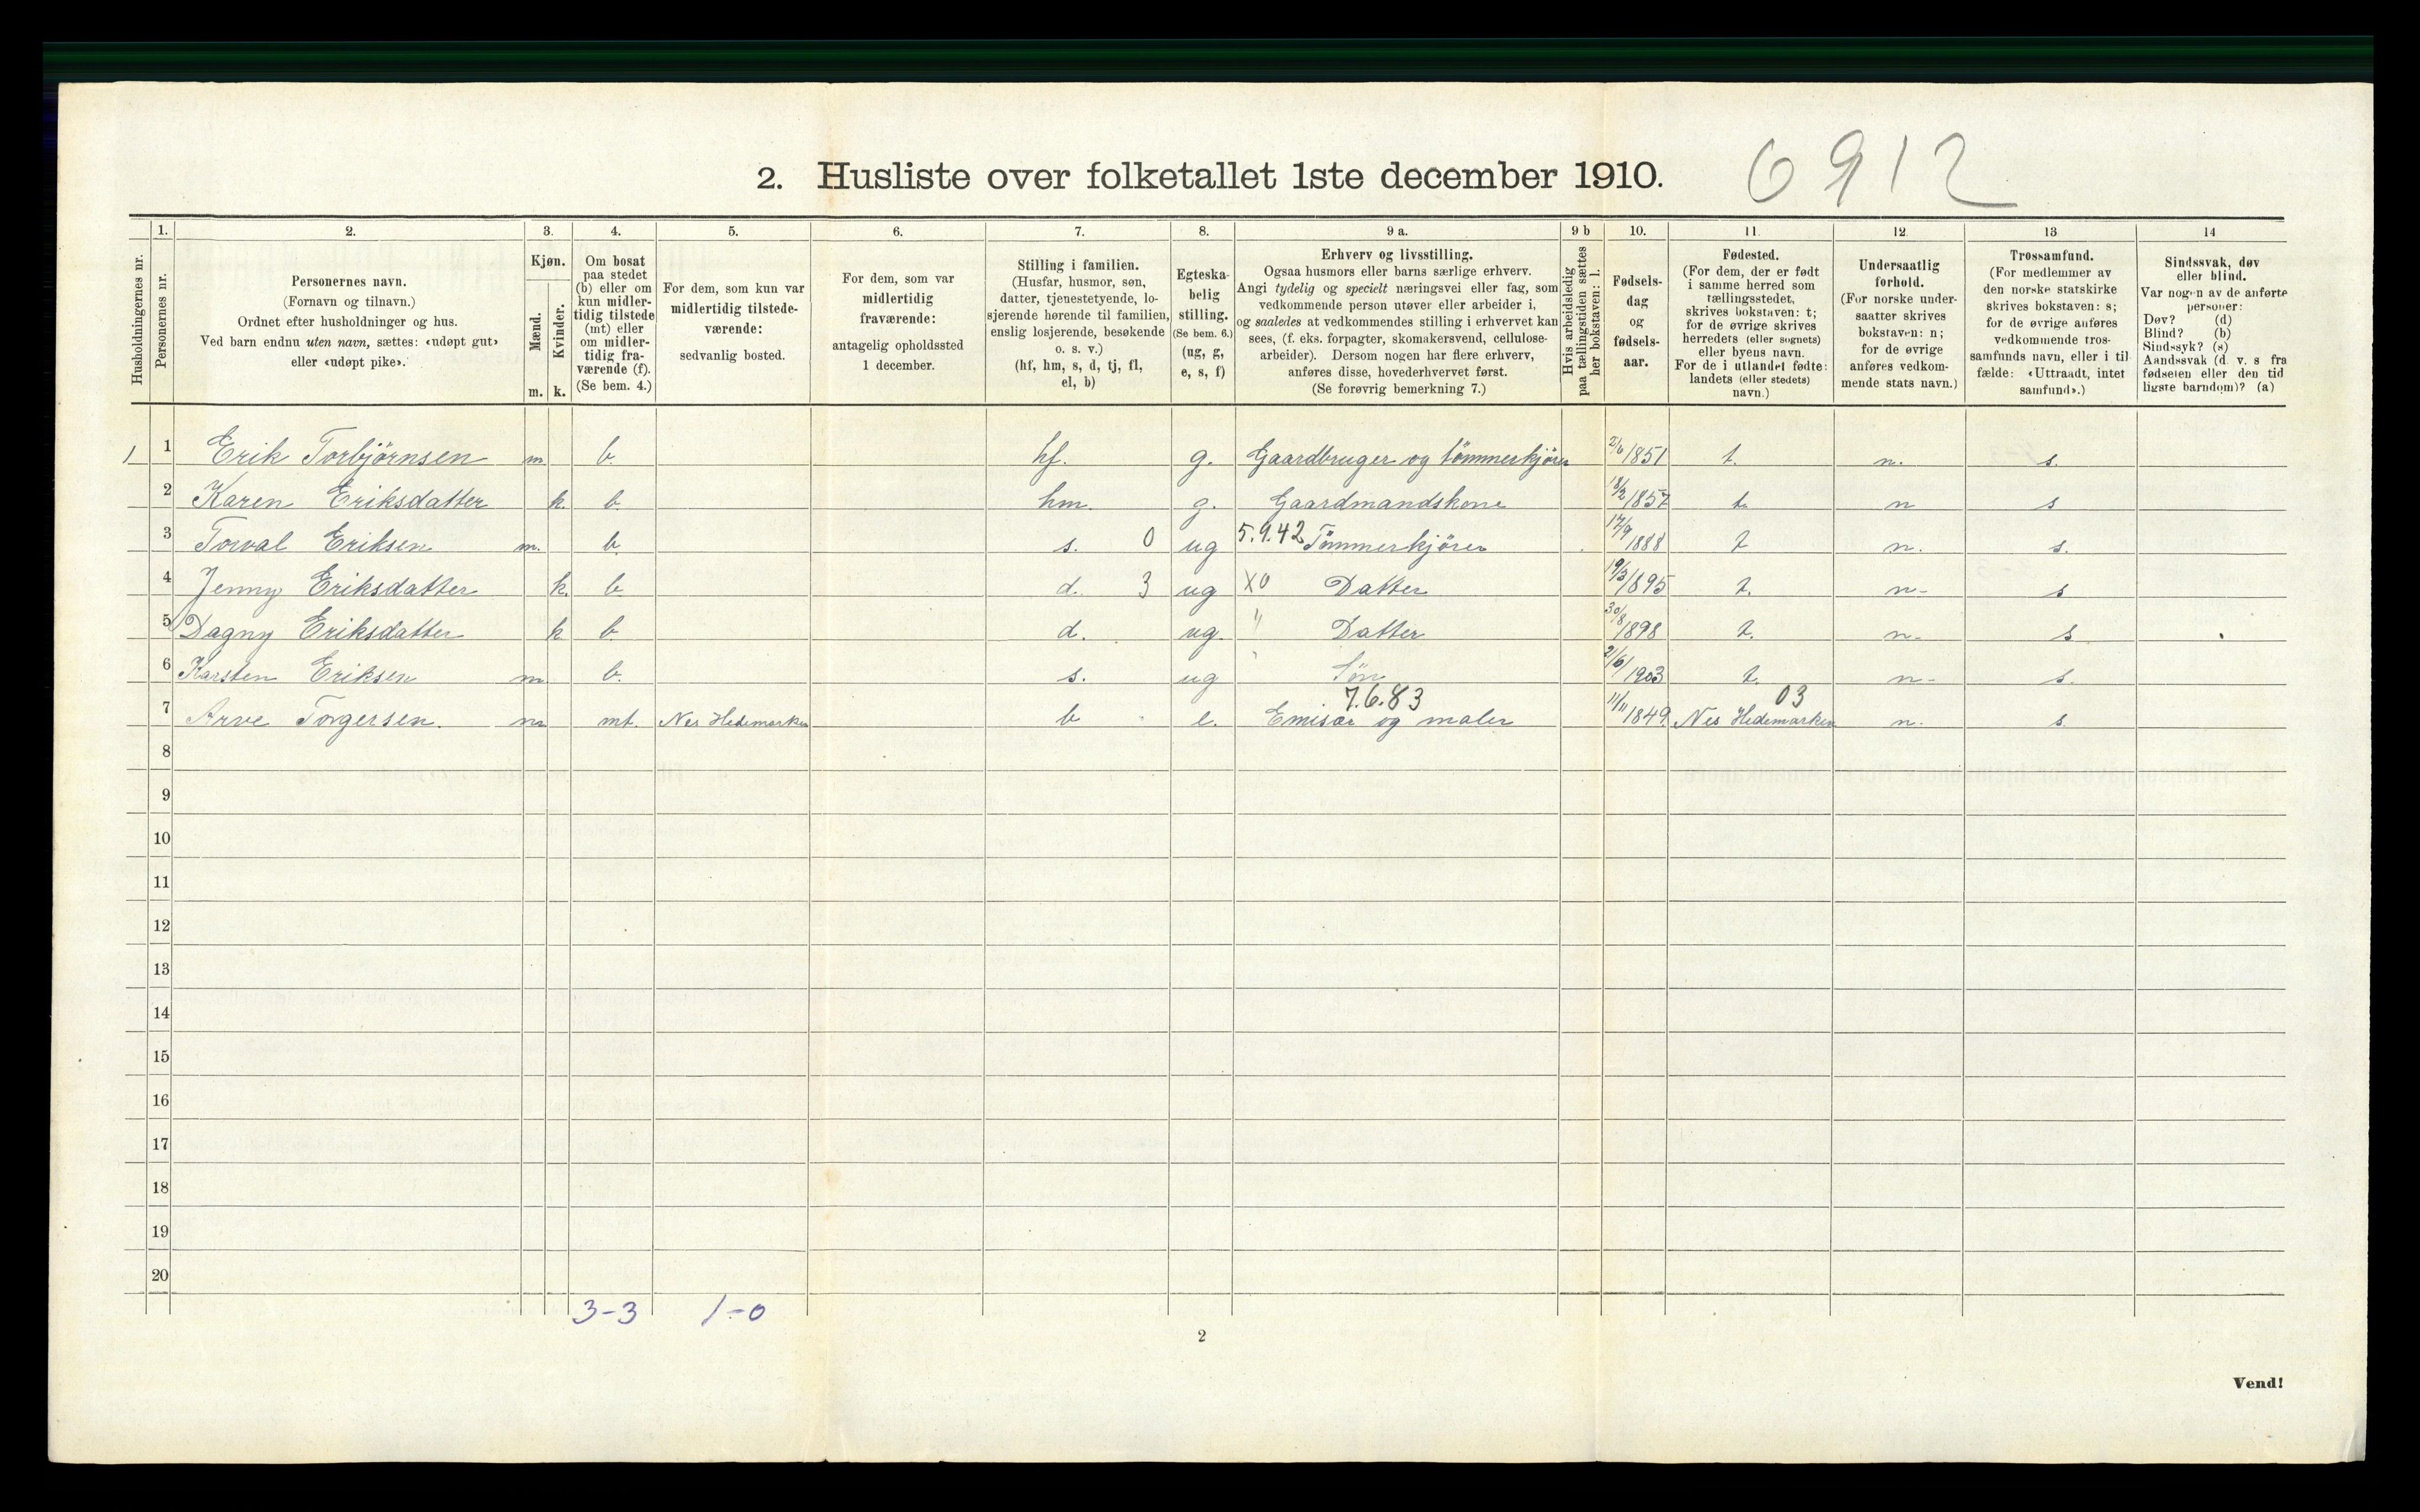 6912
2. Husliste over folketallet 1ste december 1910.
1. 2. 3. 4. 5. 6. 7. 8. 9 a. 9 b 10. 11. 12. 13 14
Husholdningernes nr.
Personernes nr.
Personernes navn.
(Fornavn og tilnavn.)
Ordnet efter husholdninger og hus.
Ved barn endnu uten navn, sættes: «udøpt gut»
eller «udøpt pike».
Kjøn.
Mænd.
Kvinder.
m. k.
Om bosat
paa stedet
(b) eller om
kun midler-
tidig tilstede
(mt) eller
om midler-
tidig fra-
værende (f).
(Se bem. 4.)
For dem, som kun var
midlertidig tilstede-
værende:
sedvanlig bosted.
For dem, som var
midlertidig
fraværende:
antagelig opholdssted
1 december.
Stilling i familien.
(Husfar, husmor, søn,
datter, tjenestetyende, lo-
sjerende hørende til familien,
enslig losjerende, besøkende
o. s. v.)
(hf, hm, s, d, tj, fl,
el, b)
Egteska-
belig
stilling.
(Se bem. 6.)
(ug, g,
e, s, f)
Erhverv og livsstilling.
Ogsaa husmors eller barns særlige erhverv.
Angi tydelig og specielt næringsvei eller fag, som
vedkommende person utøver eller arbeider i,
og saaledes at vedkommendes stilling i erhvervet kan
sees, (f. eks. forpagter, skomakersvend, cellulose-
arbeider). Dersom nogen har flere erhverv,
anføres disse, hovederhvervet først.
(Se forøvrig bemerkning 7.)
Hvis arbeidsledig
paa tællingstiden sættes
her bokstaven: l.
Fødsels-
dag
og
fødsels-
aar.
Fødested.
(For dem, der er født
i samme herred som
tællingsstedet,
skrives bokstaven: t;
for de øvrige skrives
herredets (eller sognets)
eller byens navn.
For de i utlandet fødte:
landets (eller stedets)
navn.)
Undersaatlig
forhold.
(For norske under-
saatter skrives
bokstaven: n;
for de øvrige
anføres vedkom-
mende stats navn.)
Trossamfund.
(For medlemmer av
den norske statskirke
skrives bokstaven: s;
for de øvrige anføres
vedkommende tros-
samfunds navn, eller i til
fælde: «Uttraadt, intet
samfund».)
Sindssvak, døv
eller blind.
Var nogen av de anførte
personer:
Døv? (d)
Blind? (b)
Sindssyk? (s)
Aandssvak (d. v. s fra
fødselen eller den tid
ligste barndom)? (a)
1 1 Erik Torbjørnsen m. b. hf. g. Gaardbruger og tömmerkjörer 2/6 1851 t. n. s.
2 Karen Eriksdatter k. b. hm. g. Gaardmandskone 18/2 1857 t. n s
3 Torval Eriksen m. b. s. 0 ug 5.9.42 Tömmerkjörer 17/9 1888 t n. s.
4 Jenny Eriksdatter k. b d. 3 ug X0 Datter 19/3 1895 t. n- s
5 Dagny Eriksdatter k b. d. ug. " Datter 30/8 1898 t. n- s
6 Karsten Eriksen m b. s. ug " Sön 2/6 1903 t. n- s.
7 Arve Torgersen. m mt. Nes Hedemarken b e. 7.6.83 Emisær og maler 11/11 1849. 03 Nes Hedemarken n. s.
8
9
10
11
12
13
14
15
16
17
18
19
20
3-3 1-0
2
Vend!